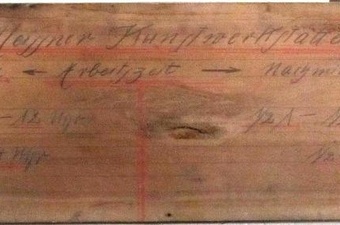 Meißner Kunstwerkstätte
← Arbeitszeit → Nachm
- 12 Uhr 1/2 1 -
Uhr 1/2